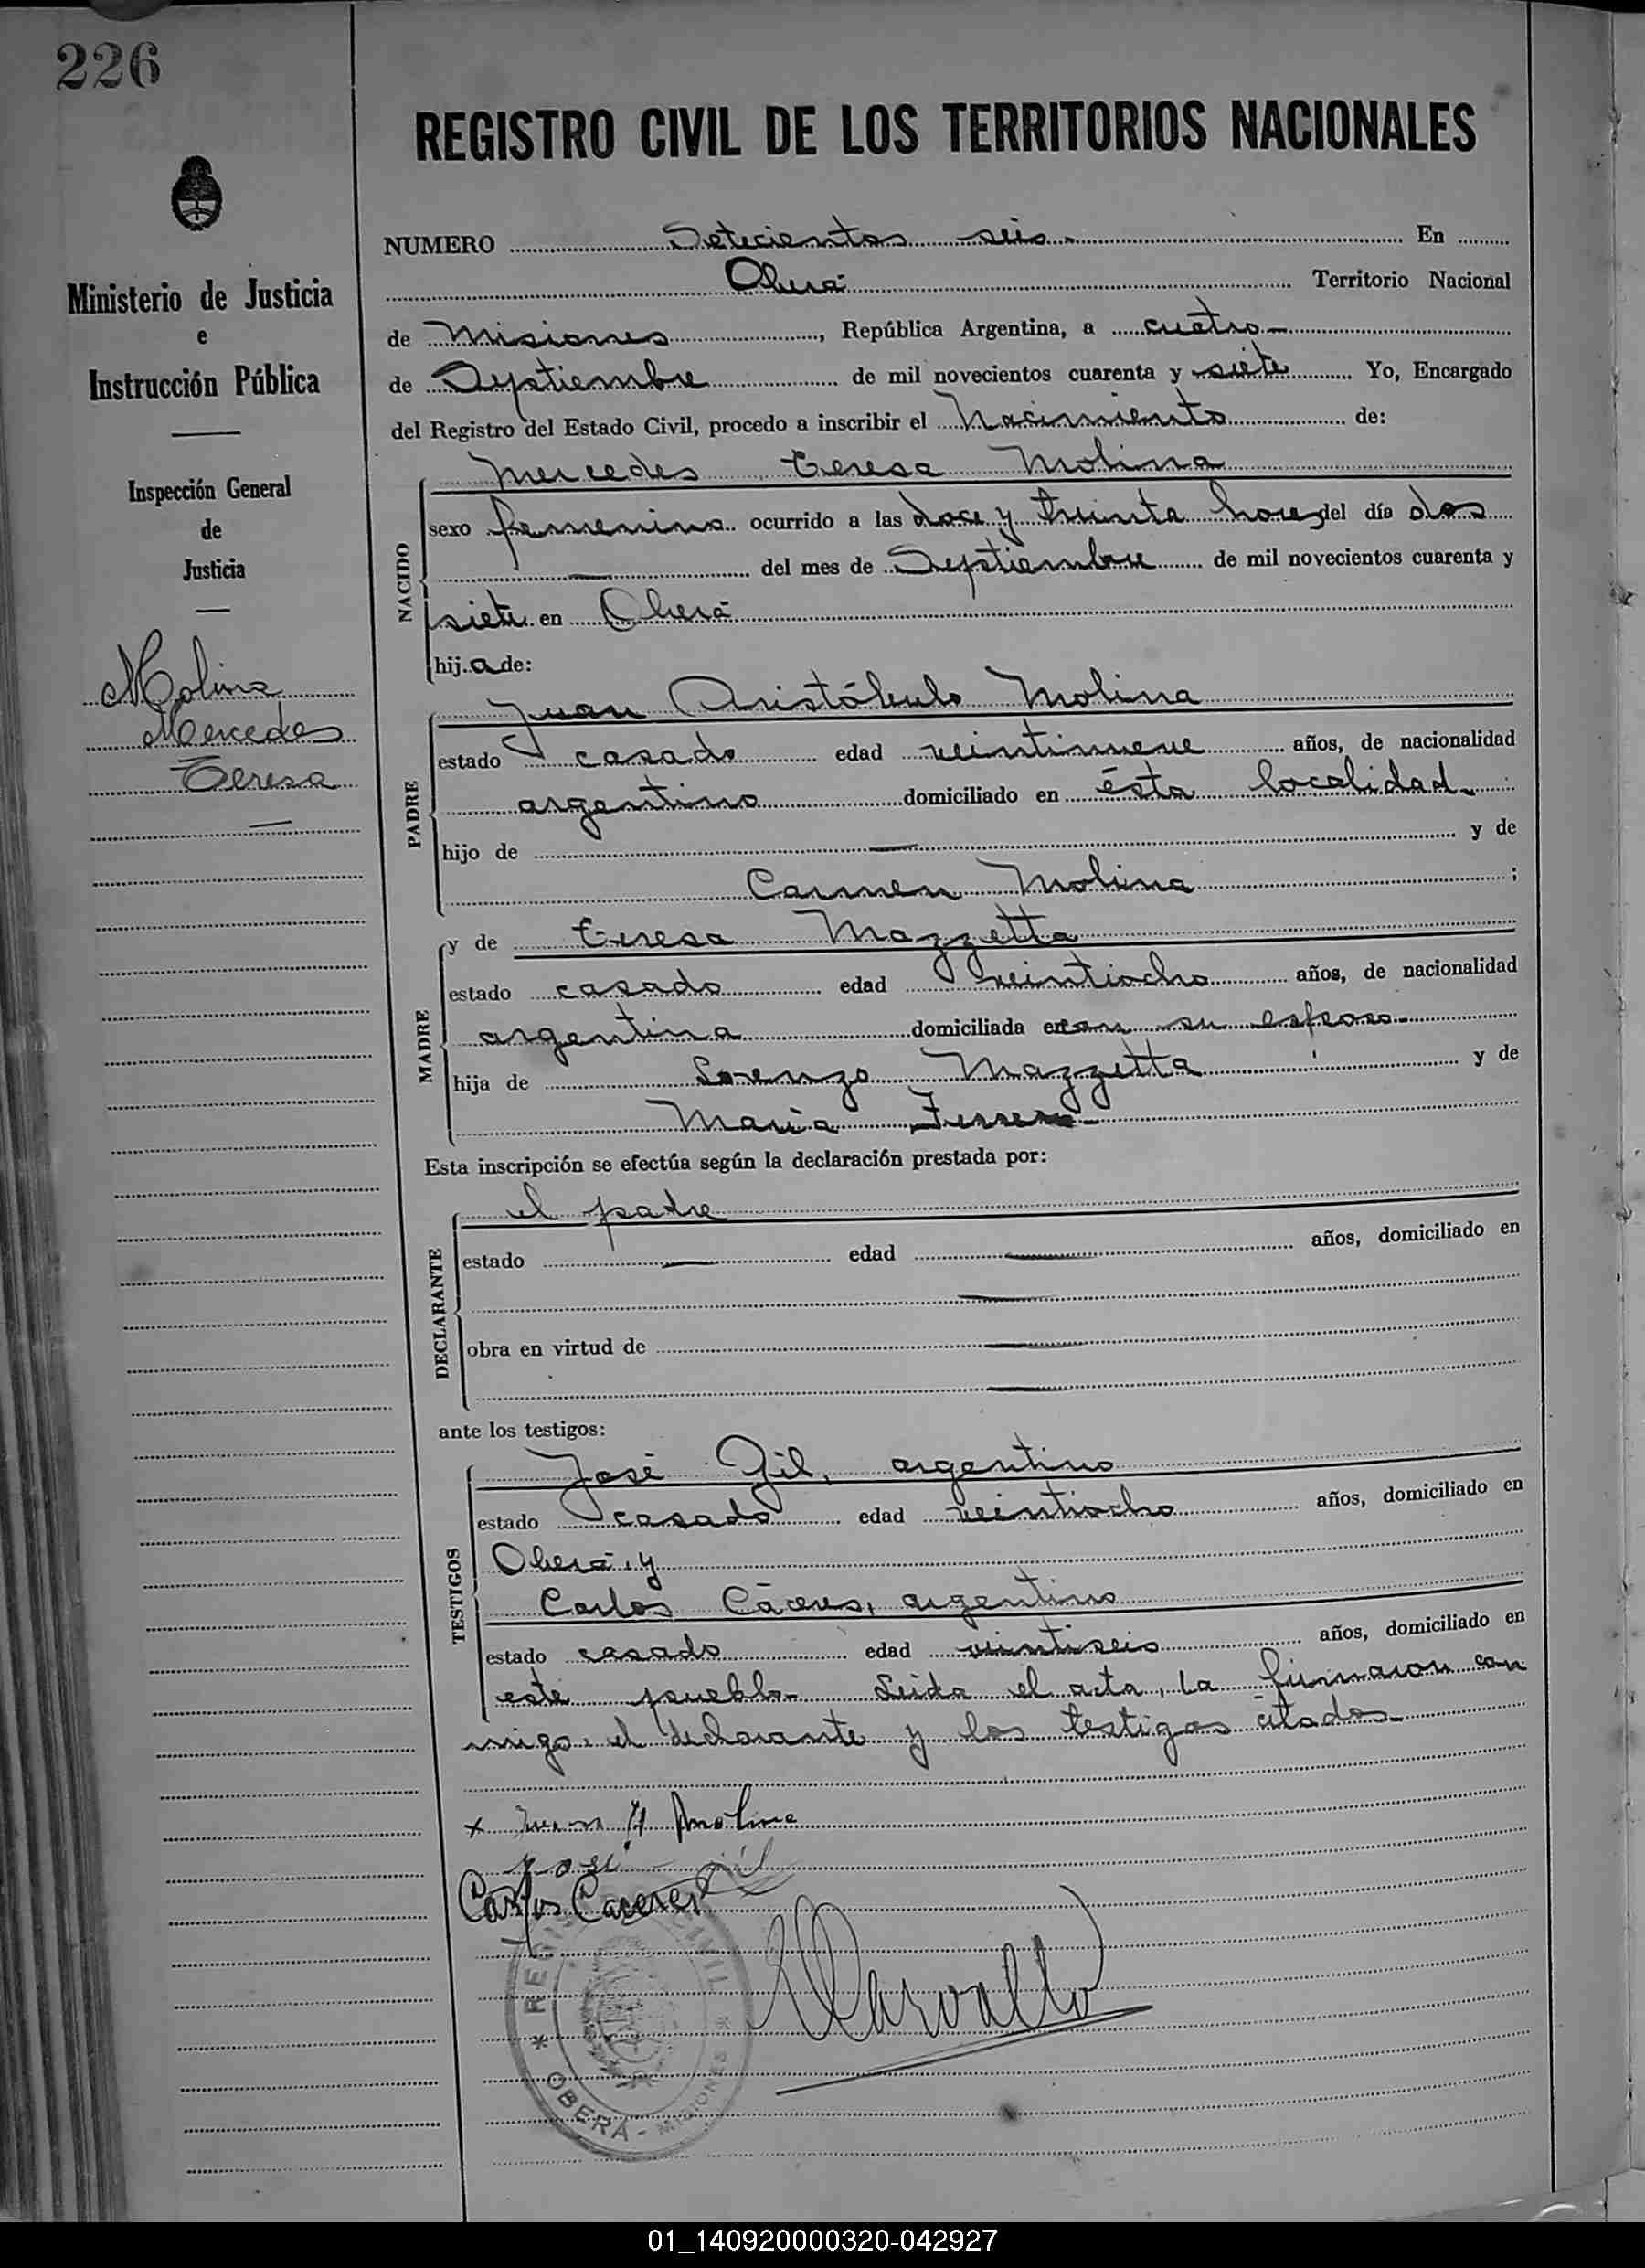 226
REGISTRO CIVIL DE LOS TERRITORIOS NACIONALES
Ministerio de Justicia
e
Instrucción Pública
Inspección General
de
Justicia
Molina
Mercedes
Teresa
NUMERO Setecientos seis.- En
Oberá Territorio Nacional
de Misiones, República Argentina, a cuatro-
de Septiembre de mil novecientos cuarenta y siete Yo, Encargado
del Registro del Estado Civil, procedo a inscribir el Nacimiento de:
NACIDO
Mercedes Teresa Molina
sexo femenino ocurrido a las doce y treinta horas del día dos
— del mes de Septiembre de mil novecientos cuarenta y
siete en Oberá
hij.a de:
PADRE
Juan Aristóbulo Molina
estado casado edad veintinueve años, de nacionalidad
argentino domiciliado en ésta localidad.
hijo de — y de
Carmen Molina ;
MADRE
y de Teresa Mazzetta
estado casado edad veintiocho años, de nacionalidad
argentina domiciliada con su esposo-
hija de Lorenzo Mazzetta y de
Maria
Esta inscripción se efectúa según la declaración prestada por:
DECLARANTE
el padre
estado — edad — años, domiciliado en
—
obra en virtud de —
—
ante los testigos:
TESTIGOS
José Gil, argentino
estado casado edad veintiocho años, domiciliado en
Oberá, y
Carlos Cáceres, argentino
estado casado edad veintiseis años, domiciliado en
este pueblo- Leida el acta, la firmaron con
migo, el declarante y los testigos citados-
x Juan A Molina
José Gil
Carlos Caceres
REGISTRO CIVIL
* OBERÁ - MISIONES *
01_140920000320-042927